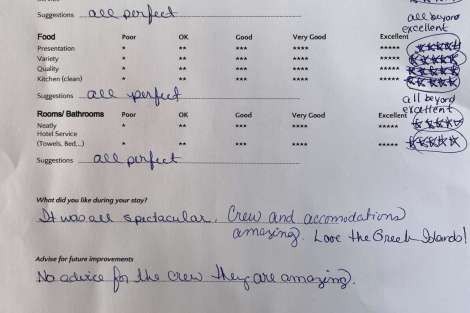 Suggestions all perfect
all beyond
excellent
Food Poor OK Good Very Good Excellent
Presentation * ** *** **** ***** *****
Variety * ** *** **** ***** *****
Quality * ** *** **** ***** *****
Kitchen (clean) * ** *** **** ***** *****
Suggestions all perfect
all beyond
excellent
Rooms/ Bathrooms Poor OK Good Very Good Excellent
Neatly * ** *** **** ***** *****
Hotel Service
(Towels, Bed,...) * ** *** **** ***** *****
Suggestions all perfect
What did you like during your stay?
It was all spectacular. Crew and accomodations
amazing. Love the Greek Islands!
Advise for future improvements
No advice for the crew they are amazing.